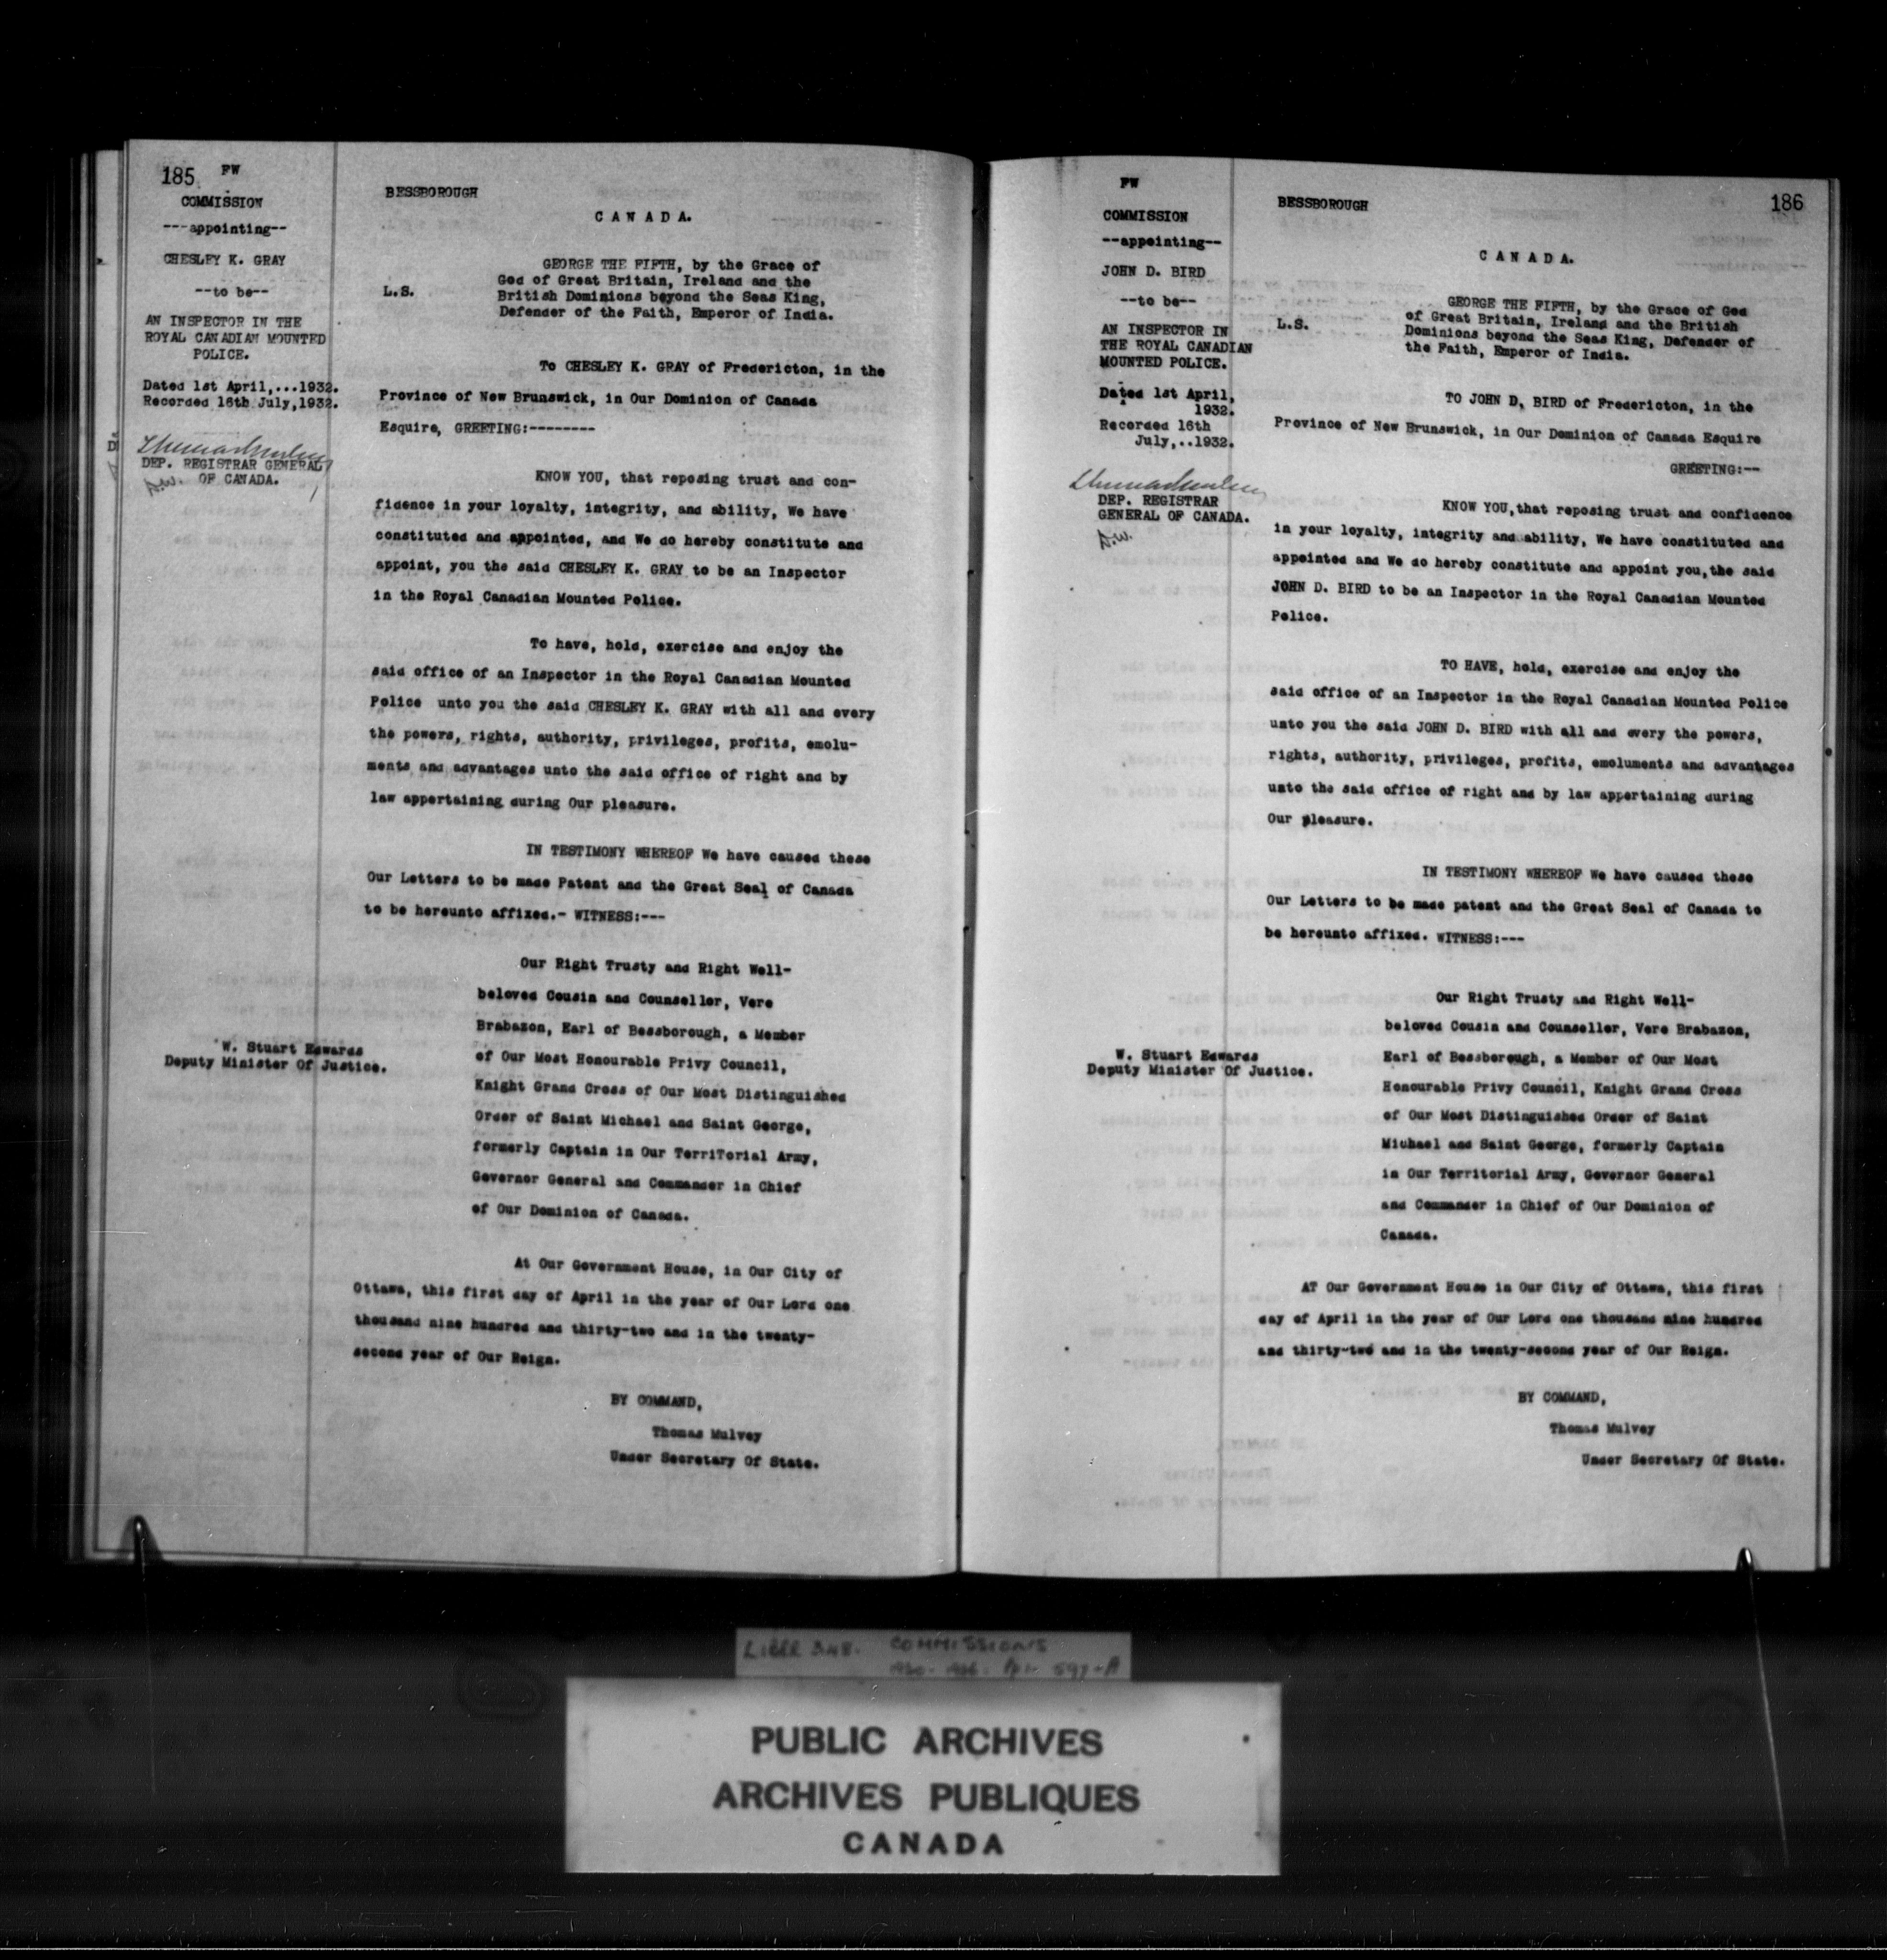 185 FW
COMMISSION
---appointing--
CHESLEY K. GRAY
--to be--
AN INSPECTOR IN THE
ROYAL CANADIAN MOUNTED
POLICE.
Dated 1st April,...1932.
Recorded 16th July,1932.
DEP. REGISTRAR GENERAL
OF CANADA.
W. Stuart Edwards
Deputy Minister Of Justice.
BESSBOROUGH
CANADA.
L.S.
GEORGE THE FIFTH, by the Grace of
God of Great Britain, Ireland and the
British Dominions beyond the Seas King,
Defender of the Faith, Emperor of India.
To CHESLEY K. GRAY of Fredericton, in the
Province of New Brunswick, in Our Dominion of Canada
Esquire, GREETING:--------
KNOW YOU, that reposing trust and con-
fidence in your loyalty, integrity, and ability, We have
constituted and appointed, and We do hereby constitute and
appoint, you the said CHESLEY K. GRAY to be an Inspector
in the Royal Canadian Mounted Police.
To have, hold, exercise and enjoy the
said office of an Inspector in the Royal Canadian Mounted
Police unto you the said CHESLEY K. GRAY with all and every
the powers, rights, authority, privileges, profits, emolu-
ments and advantages unto the said office of right and by
law appertaining during Our pleasure.
IN TESTIMONY WHEREOF We have caused these
Our Letters to be made Patent and the Great Seal of Canada
to be hereunto affixed.- WITNESS:---
Our Right Trusty and Right Well-
beloved Cousin and Counsellor, Vere
Brabazon, Earl of Bessborough, a Member
of Our Most Honourable Privy Council,
Knight Grand Cross of Our Most Distinguished
Order of Saint Michael and Saint George,
formerly Captain in Our TerriTorial Army,
Governor General and Commander in Chief
of Our Dominion of Canada.
At Our Government House, in Our City of
Ottawa, this first day of April in the year of Our Lord one
thousand nine hundred and thirty-two and in the twenty-
second year of Our Reign.
BY COMMAND,
Thomas Mulvey
Under Secretary Of State.
FW
COMMISSION
--appointing--
JOHN D. BIRD
--to be--
AN INSPECTOR IN
THE ROYAL CANADIAN
MOUNTED POLICE.
Dated 1st April,
1932.
Recorded 16th
July,..1932.
DEP. REGISTRAR
GENERAL OF CANADA.
W. Stuart Edwards
Deputy Minister Of Justice.
BESSBOROUGH
186
CANADA.
L.S.
GEORGE THE FIFTH, by the Grace of God
of Great Britain, Ireland and the British
Dominions beyond the Seas King, Defender of
the Faith, Emperor of India.
TO JOHN D. BIRD of Fredericton, in the
Province of New Brunswick, in Our Dominion of Canada Esquire
GREETING:--
KNOW YOU,that reposing trust and confidence
in your loyalty, integrity and ability, We have constituted and
appointed and We do hereby constitute and appoint you,the said
JOHN D. BIRD to be an Inspector in the Royal Canadian Mounted
Police.
TO HAVE, hold, exercise and enjoy the
said office of an Inspector in the Royal Canadian Mounted Police
unto you the said JOHN D. BIRD with all and every the powers,
rights, authority, privileges, profits, emoluments and advantages
unto the said office of right and by law appertaining during
Our pleasure.
IN TESTIMONY WHEREOF We have caused these
Our Letters to be made patent and the Great Seal of Canada to
be hereunto affixed. WITNESS:---
Our Right Trusty and Right Well-
beloved Cousin and Counsellor, Vere Brabazon,
Earl of Bessborough, a Member of Our Most
Honourable Privy Council, Knight Grand Cross
of Our Most Distinguished Order of Saint
Michael and Saint George, formerly Captain
in Our Territorial Army, Governor General
and Commander in Chief of Our Dominion of
Canada.
AT Our Government House in Our City of Ottawa, this first
day of April in the year of Our Lord one thousand nine hundred
and thirty-two and in the twenty-second year of Our Reign.
BY COMMAND,
Thomas Mulvey
Under Secretary Of State.
COMMISSIONS
PUBLIC ARCHIVES
ARCHIVES PUBLIQUES
CANADA